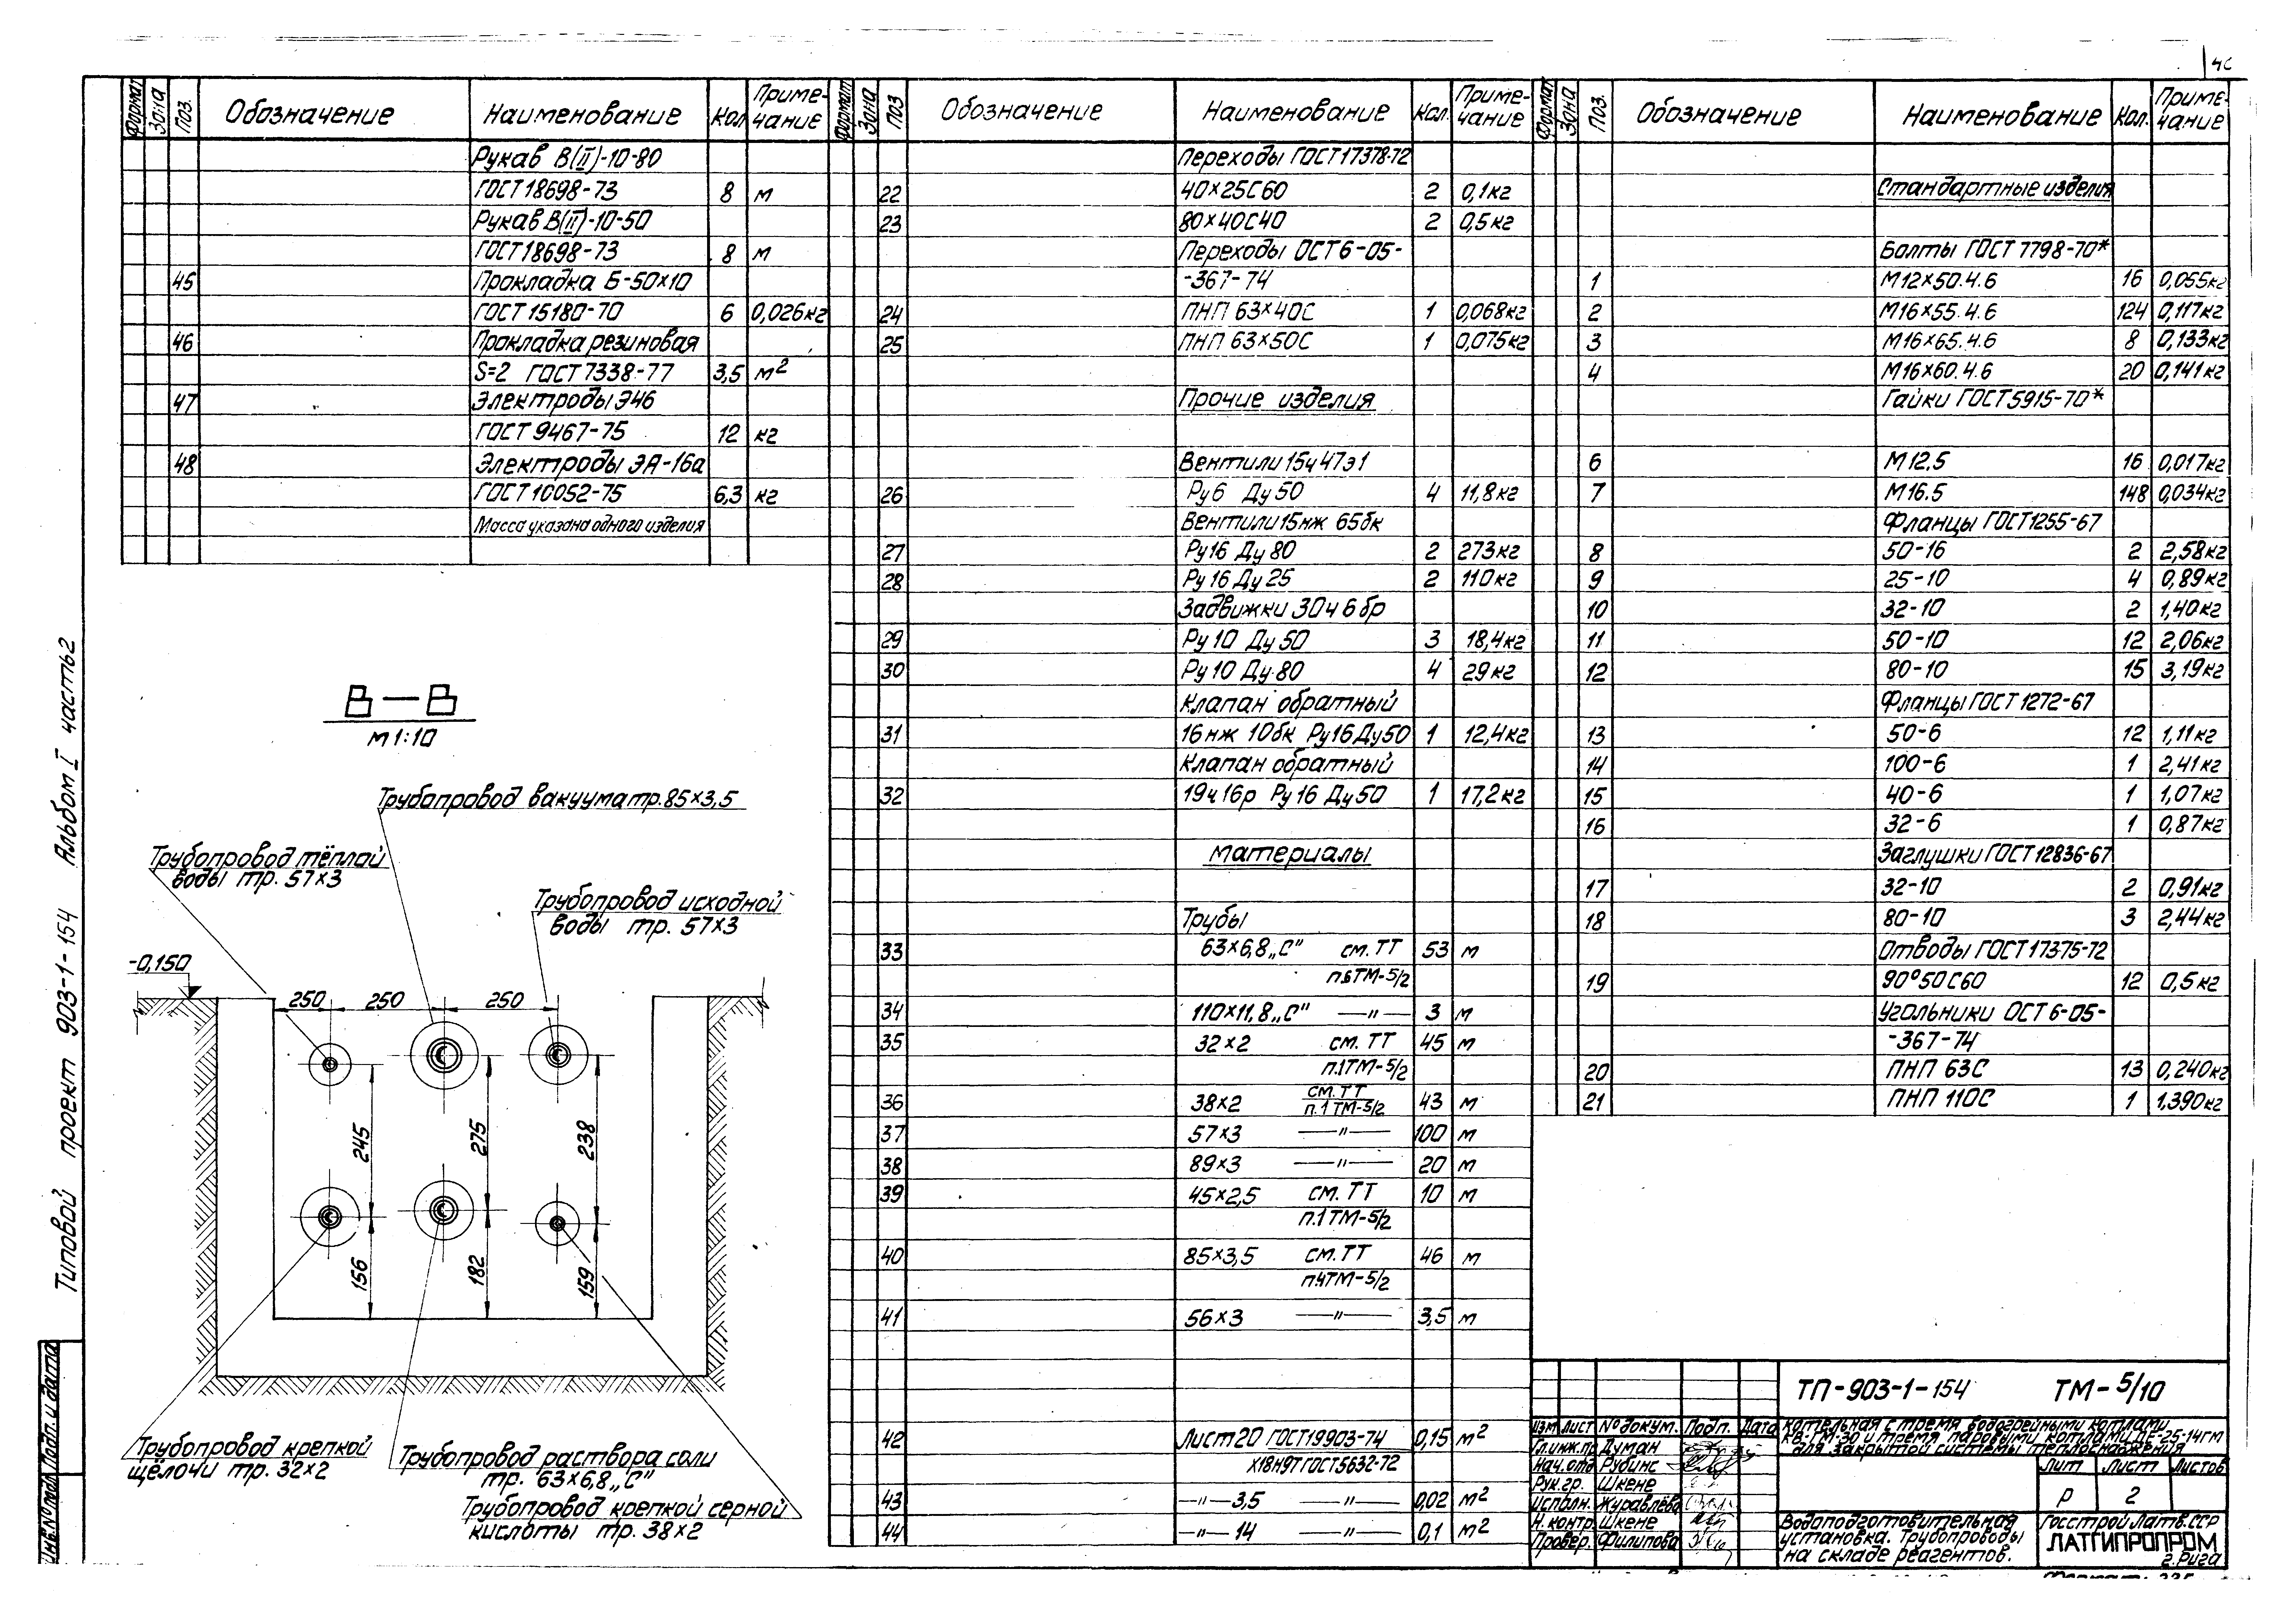 Формат Зона Поз. Обозначение Наименование Кол. Приме-чание
Рукав В(II)-10-80
ГОСТ 18698-73 8 м
Рукав В(II)-10-50
ГОСТ 18698-73 8 м
45 Прокладка Б-50×10
ГОСТ 15180-70 6 0,026кг
46 Прокладка резиновая
S=2 ГОСТ 7338-77 3,5 м²
47 Электроды Э46
ГОСТ 9467-75 12 кг
48 Электроды ЭА-1ба
ГОСТ 10052-75 6,3 кг
Масса указана одного изделия
В—В
М 1:10
Трубопровод вакуума тр. 85×3,5
Трубопровод тёплой
воды тр. 57×3
Трубопровод исходной
воды тр. 57×3
-0,150
250 250 250
245 275 238
156 182 159
Трубопровод крепкой
щёлочи тр. 32×2
Трубопровод раствора соли
тр. 63×6,8 „С"
Трубопровод крепкой серной
кислоты тр. 38×2
Формат Зона Поз Обозначение Наименование Кол. Приме-чание
Переходы ГОСТ 17378-72
22 40×25С60 2 0,1кг
23 80×40С40 2 0,5кг
Переходы ОСТ 6-05-
-367-74
24 ПНП 63×40С 1 0,068кг
25 ПНП 63×50С 1 0,075кг
Прочие изделия
Вентили 15ч47э1
26 Ру6 Ду 50 4 11,8кг
Вентили 15нж 65бк
27 Ру16 Ду 80 2 273кг
28 Ру 16 Ду 25 2 110кг
Задвижки 30ч 6 бр
29 Ру 10 Ду 50 3 18,4кг
30 Ру 10 Ду 80 4 29 кг
Клапан обратный
31 16 нж 10бк Ру16 Ду50 1 12,4кг
Клапан обратный
32 19ч 16р Ру 16 Ду50 1 17,2кг
Материалы
Трубы
33 63×6,8 „С" см. ТТ 53 м
ТМ-5/2
34 110×11,8 „С" —"— 3 м
35 32×2 см. ТТ 45 м
п.1ТМ-5/2
36 38×2 см. ТТ 43 м
п.1 ТМ-5/2
37 57×3 —"— 100 м
38 89×3 —"— 20 м
39 45×2,5 см. ТТ 10 м
п.1ТМ-5/2
40 85×3,5 см. ТТ 46 м
п.4ТМ-5/2
41 56×3 —"— 3,5 м
42 Лист 20 ГОСТ 19903-74 0,15 м²
Х18Н9Т ГОСТ 5632-72
43 —"— 3,5 —"— 0,02 м²
44 —"— 14 —"— 0,1 м²
Формат Зона Поз. Обозначение Наименование Кол. Приме-чание
Стандартные изделия
Болты ГОСТ 7798-70*
1 М12×50.4.6 16 0,055кг
2 М16×55.4.6 124 0,117кг
3 М16×65.4.6 8 0,133кг
4 М16×60.4.6 20 0,141кг
Гайки ГОСТ 5915-70*
6 М12.5 16 0,017кг
7 М16.5 148 0,034кг
Фланцы ГОСТ 1255-67
8 50-16 2 2,58кг
9 25-10 4 0,89кг
10 32-10 2 1,40кг
11 50-10 12 2,06кг
12 80-10 15 3,19кг
Фланцы ГОСТ 1272-67
13 50-6 12 1,11кг
14 100-6 1 2,41кг
15 40-6 1 1,07кг
16 32-6 1 0,87кг
Заглушки ГОСТ 12836-67
17 32-10 2 0,91кг
18 80-10 3 2,44кг
Отводы ГОСТ 17375-72
19 90°50С60 12 0,5кг
Угольники ОСТ 6-05-
-367-74
20 ПНП 63С 13 0,240кг
21 ПНП 110С 1 1,390кг
ТП-903-1-154 ТМ-5/10
Изм Лист № докум. Подп. Дата
Гл.инж.пр Думан
Нач. отд Рубинс
Рук.гр. Шкене
Исполн. Журавлёва
Н. контр. Шкене
Провер. Филипова
Котельная с тремя водогрейными котлами
КВ-ГМ-30 и тремя паровыми котлами ДЕ-25-14ГМ
для закрытой системы теплоснабжения
Лит Лист Листов
Р 2
Водоподготовительная
установка. Трубопроводы
на складе реагентов.
Госстрой Латв. ССР
ЛАТГИПРОПРОМ
г. Рига
Типовой проект 903-1-154 Альбом I часть 2
Инв.№подл. Подп. и дата